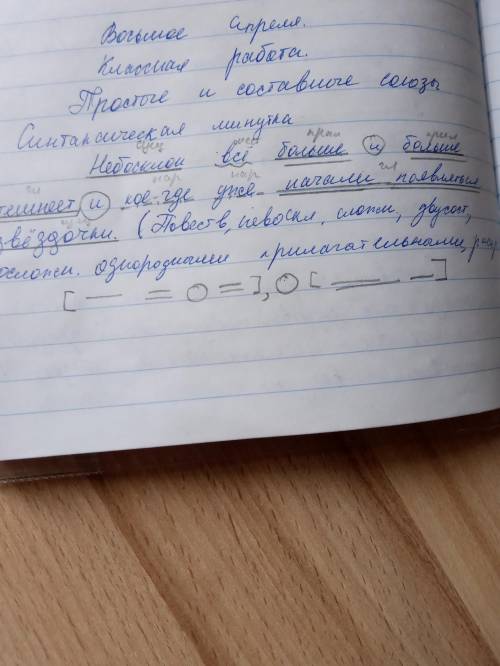 Восьмое апреля.
Классная работа.
Простые и составные союзы
Синтаксическая минутка
сущ прил прил
Небосклон всё больше и больше
гл нар нар гл
темнеет и кое-где уже начали появляться
звёздочки. (Повеств, невоскл, сложн, двусост,
осложн. однородными прилагательными,
[— = О =], О [= —]